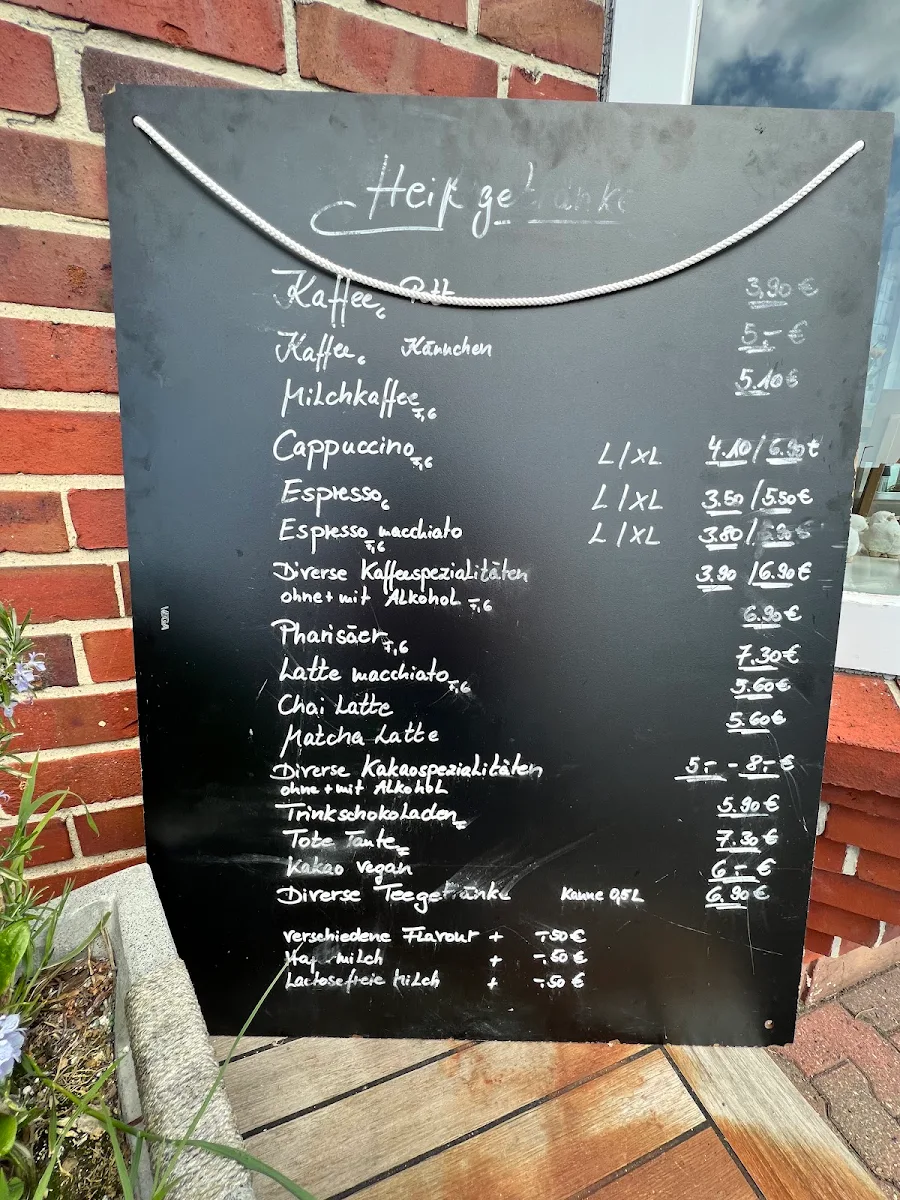 Heißgetränke
Kaffee 6 Pott 3,90 €
Kaffee 6 Kännchen 5,- €
Milchkaffee 7,6 5.10 €
Cappuccino 7,6 L/XL 4.10/6.90 €
Espresso 6 L/XL 3.50/5.50 €
Espresso macchiato 7,6 L/XL 3.80/
Diverse Kaffeespezialitäten 3.90/6.90 €
ohne + mit Alkohol 7,6 6.90 €
Pharisäer 7,6 7.30 €
Latte macchiato 7,6 5.60 €
Chai Latte 5.60 €
Matcha Latte
Diverse Kakaospezialitäten 5,- - 8,- €
ohne + mit Alkohol
Trinkschokoladen 7 5.90 €
Tote Tante 7 7.30 €
Kakao vegan 6,- €
Diverse Teegetränke Kanne 0,5L 6,90 €
verschiedene Flavour + -,50 €
Hafermilch + -,50 €
Lactosefreie Milch + -,50 €
VEGA